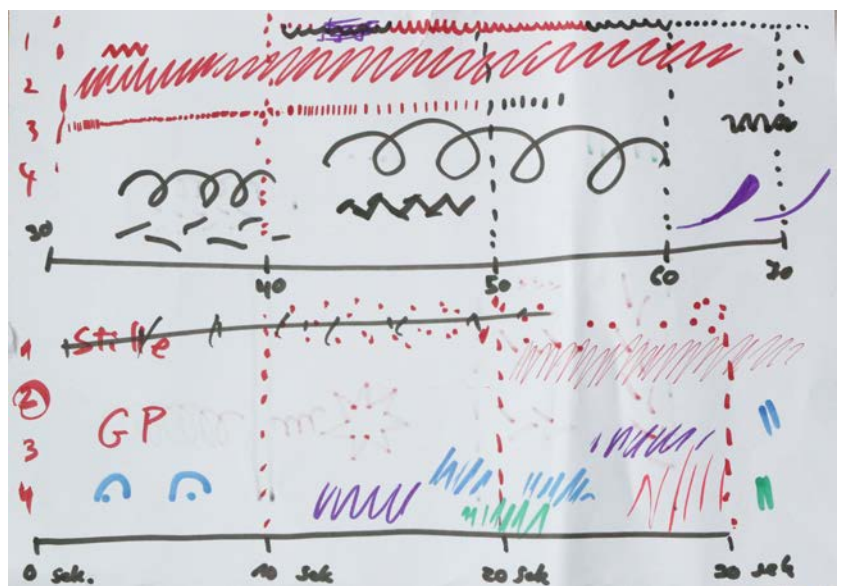 1
2
3
4
30
40
50
60
70
1 Stille
2 GP
3
4
0 sek.
10 sek
20 sek
30 sek